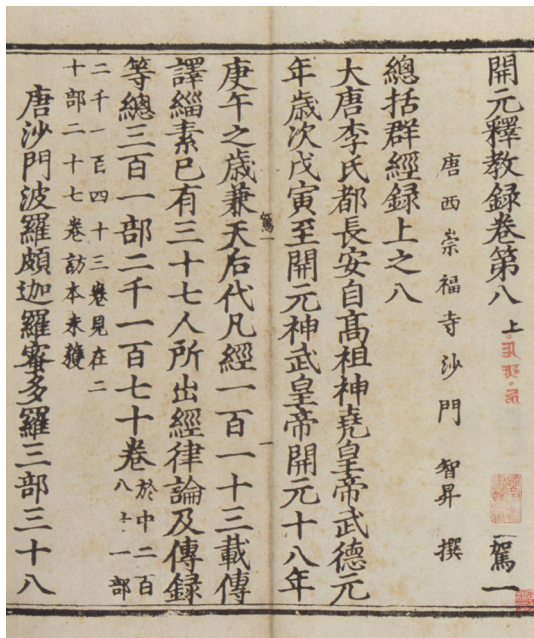 開元釋教録卷第八 上 駕一
唐西崇福寺沙門 智昇 撰
總括群經録上之八
大唐李氏都長安自髙祖神堯皇帝武德元
年歳次戊寅至開元神武皇帝開元十八年
駕 一
庚午之歳兼天后代凡經一百一十三載傳
譯緇素已有三十七人所出經律論及傳録
等總三百一部二千一百七十卷於中二百
八十一部
二千一百四十三卷見在二
十部二十七卷訪本未獲
唐沙門波羅頗迦羅蜜多羅三部三十八